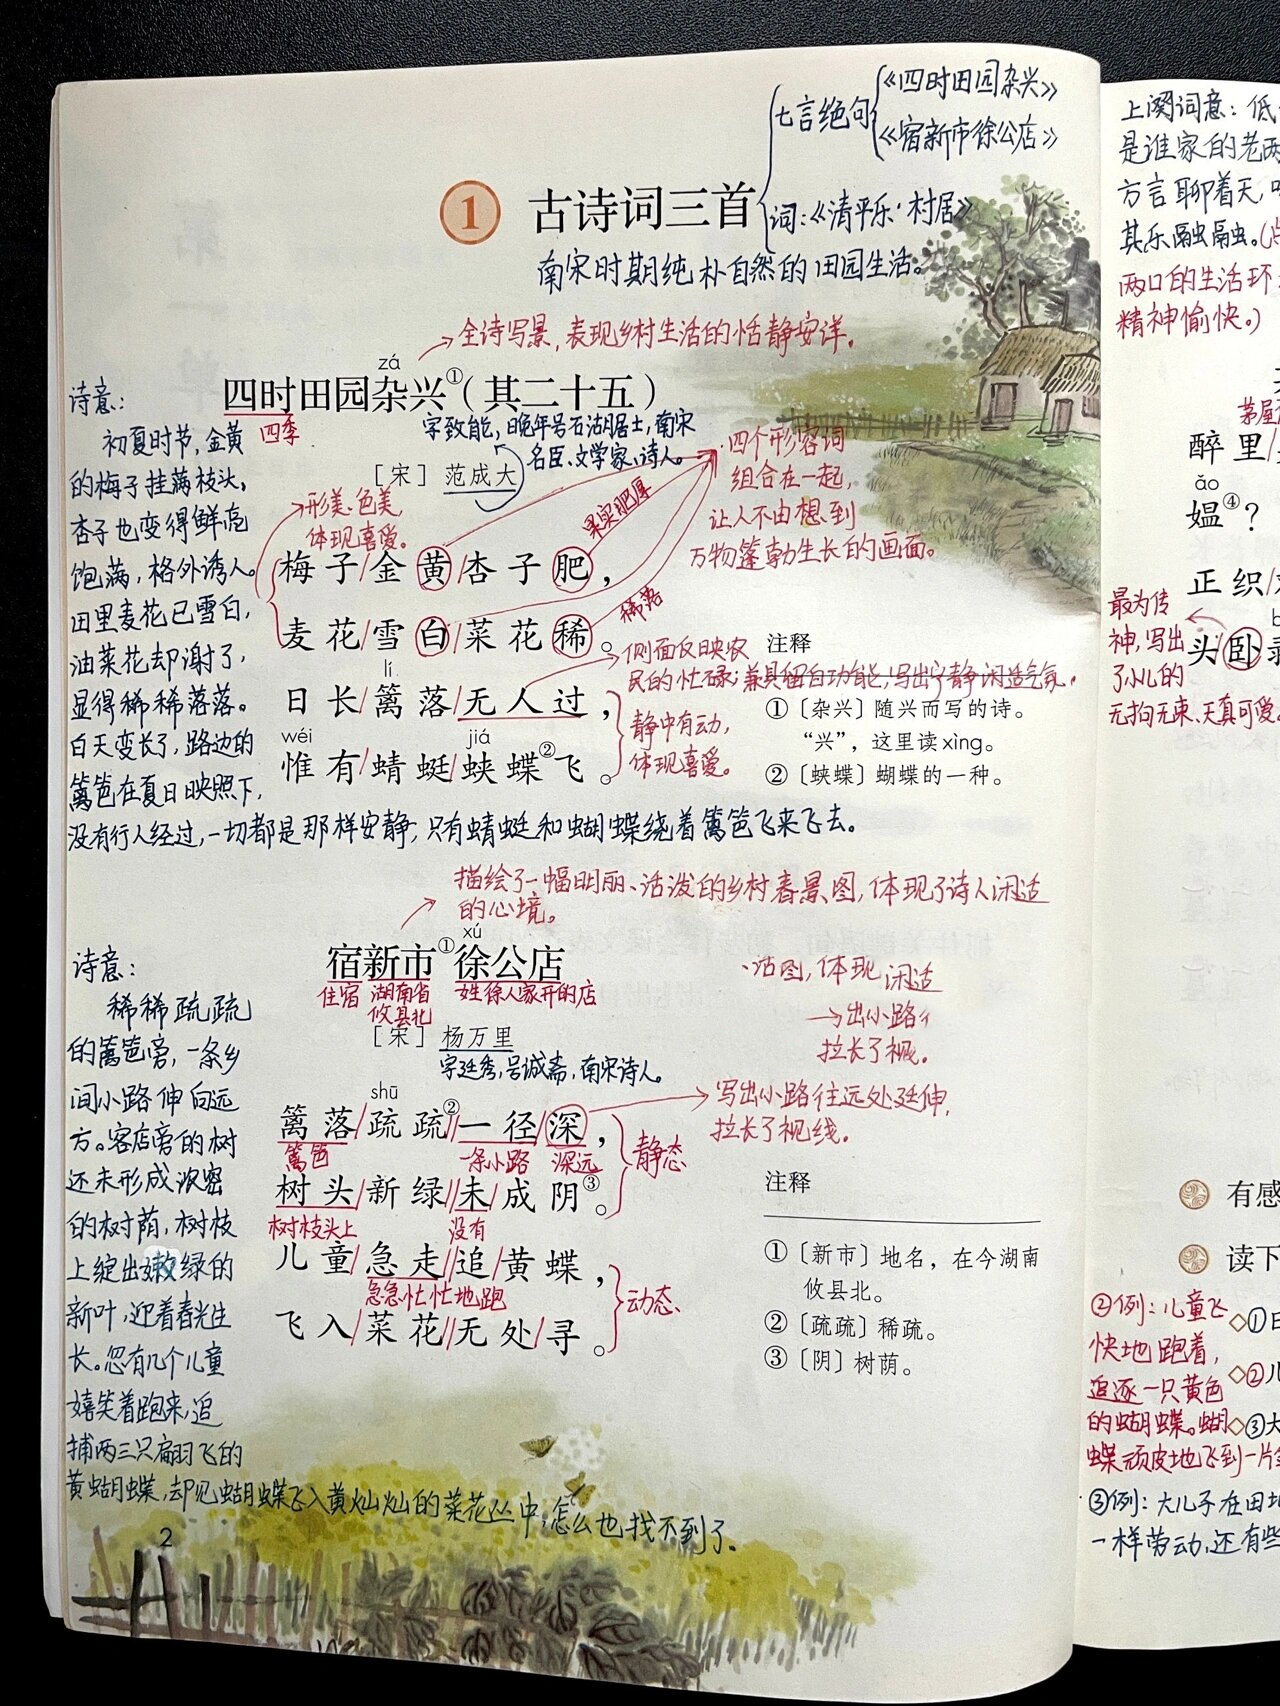 七言绝句
《四时田园杂兴》
《宿新市徐公店》
1 古诗词三首
词:《清平乐·村居》
南宋时期纯朴自然的田园生活。
全诗写景,表现乡村生活的恬静安详。
zá
四时田园杂兴①(其二十五)
四季
字致能,晚年号石湖居士,南宋
名臣、文学家、诗人。
[宋] 范成大
形美、色美,
体现喜爱。
果实肥厚
四个形容词
组合在一起,
让人不由想到
万物蓬勃生长的画面。
梅子/金黄/杏子肥,
麦花/雪白/菜花稀。
稀落
lí
日长/篱落/无人过,
wéi jiá
惟有/蜻蜓/蛱蝶②飞。
侧面反映农
民的忙碌;兼具留白功能,写出宁静闲适气氛。
静中有动,
体现喜爱。
注释
①〔杂兴〕随兴而写的诗。
“兴”,这里读xìng。
②〔蛱蝶〕蝴蝶的一种。
诗意:
初夏时节,金黄
的梅子挂满枝头,
杏子也变得鲜亮
饱满,格外诱人。
田里麦花已雪白,
油菜花却谢了,
显得稀稀落落。
白天变长了,路边的
篱笆在夏日映照下,
没有行人经过,一切都是那样安静;只有蜻蜓和蝴蝶绕着篱笆飞来飞去。
描绘了一幅明丽、活泼的乡村春景图,体现了诗人闲适
的心境。
xú
宿新市①徐公店
住宿 湖南省
攸县北
姓徐人家开的店
[宋] 杨万里
字廷秀,号诚斋,南宋诗人。
shū
篱落/疏疏②//一径/深,
篱笆 一条小路 深远
树头/新绿//未成阴③。
树枝头上 没有
静态
儿童/急走//追黄蝶,
急急忙忙地跑
飞入/菜花/无处/寻。
动态
话图,体现 闲适
→出小路
拉长了视。
写出小路往远处延伸,
拉长了视线。
注释
①〔新市〕地名,在今湖南
攸县北。
②〔疏疏〕稀疏。
③〔阴〕树荫。
诗意:
稀稀疏疏
的篱笆旁,一条乡
间小路伸向远
方。客店旁的树
还未形成浓密
的树荫,树枝
上绽出嫩绿的
新叶,迎着春光生
长。忽有几个儿童
嬉笑着跑来,追
捕两三只翩飞的
黄蝴蝶,却见蝴蝶飞入黄灿灿的菜花丛中,怎么也找不到了。
2
上阕词意:低
是谁家的老两
方言聊着天,
其乐融融。
两口的生活环
精神愉快。)
茅屋
醉里/
ǎo
媪④?
正织/
最为传
神,写出
了小儿的
无拘无束、天真可爱
头卧
有感
读下
②例:儿童飞
快地跑着,
追逐一只黄色
的蝴蝶。蝴
蝶顽皮地飞到一片
◇①日
◇②儿
◇③大
③例:大儿子在田
一样劳动,还有些